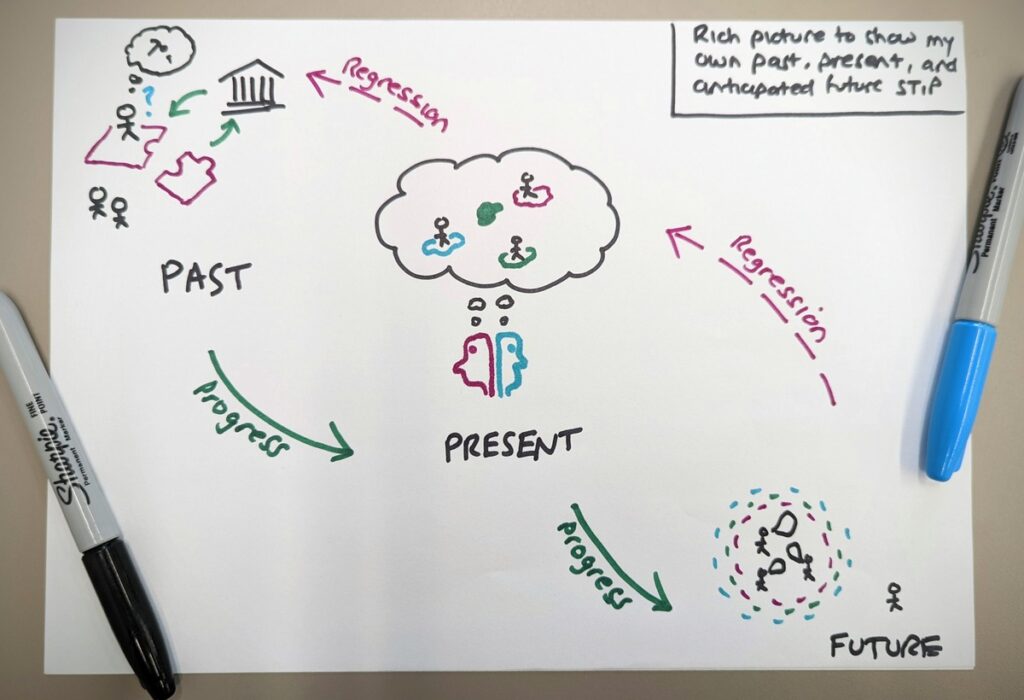 Rich picture to show my
own past, present, and
anticipated future STiP
Regression
?
PAST
Regression
progress
PRESENT
progress
FUTURE
Sharpie
FINE POINT
Permanent Marker
Sharpie
Permanent Marker